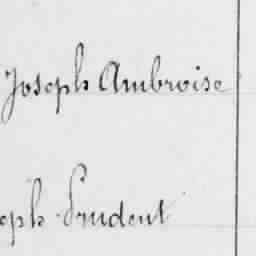 Joseph Ambroise
eph Prudent